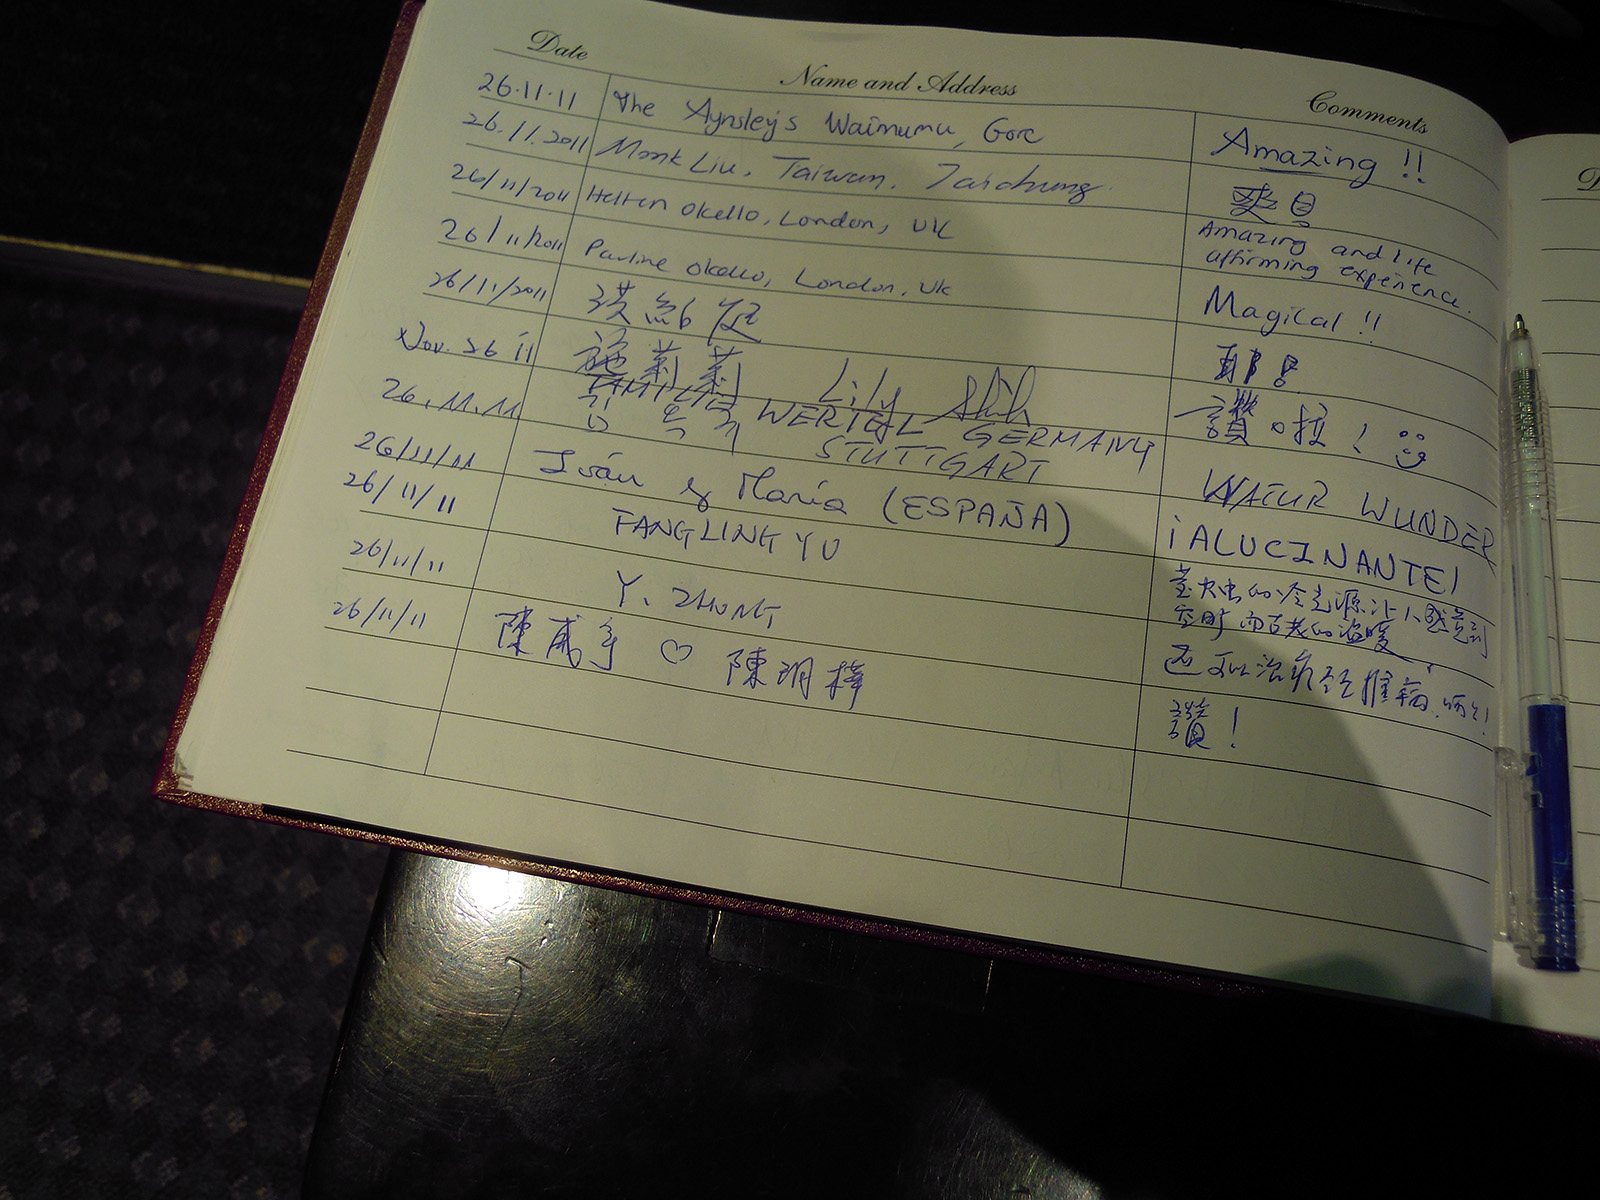 Date Name and Address Comments
26.11.11 The Aynsley's Waimumu, Gore Amazing !!
26.11.2011 Mark Liu, Taiwan, Taichung.
26/11/2011 Hellen Okello, London, UK Amazing and life
affirming experience.
26/11/2011 Pauline Okello, London, UK Magical !!
26/11/2011
Nov. 26 11 施莉莉 Lily Shih 讚啦!
26.11.11 FAMILIE WERTEL GERMANY NATUR WUNDER
STUTTGART
26/11/11 Iván y María (ESPAÑA) ¡ALUCINANTE!
26/11/11 FANGLING YU
26/11/11 Y. ZHONG
26/11/11 陳威宇 ♡ 陳玥樺 讚!